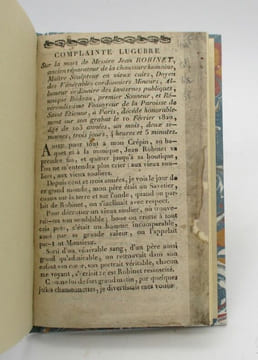 COMPLAINTE LUGUBRE
Sur la mort de Messire Jean ROBINET,
ancien réparateur de la chaussure humaine,
Maître Sculpteur en vieux cuirs, Doyen
des Vénérables Cordonniers Mineurs, Al-
lumeur ordinaire des lanternes publiques,
unique Bedeau, premier Sonneur, et Ré-
vérendissime Fossoyeur de la Paroisse de
Saint Etienne, à Paris, décédé honorablement
sur son grabat le 10 Février 1820,
âgé de 103 années, un mois, deux se-
maines, trois jours, 4 heures et 5 minutes.
pour tout à mon Crépin, 
et à la manique, Jean Robinet va
prendre fin, et quitter jusqu'à sa boutique;
l'on ne m'entendra plus crier: aux vieux sou-
liers, aux vieux souliers.
Depuis cent et trois années, je vois le jour de
ce grand monde, mon père était un Savetier,
connu sur la terre et sur l'onde, quand on par-
lait de Robinet, on s'inclinait avec respect.
Pour décrotter un vieux soulier, on trouve-
son semblable; haut en crinte à tout
était un homme incomparable,
par sa grande valeur, on l'appelait
et Monsieur.
Sorti d'un vénérable sang, d'un père aussi
grand qu'admirable, on retrouvait dans son
enfant son cœur, son portrait véritable, chacun
me voyant, s'écriait: ce est Robinet ressuscité.
Comme lus de fort grand matin, par quelques
jolies chansonnettes, je divertissais mes voisins